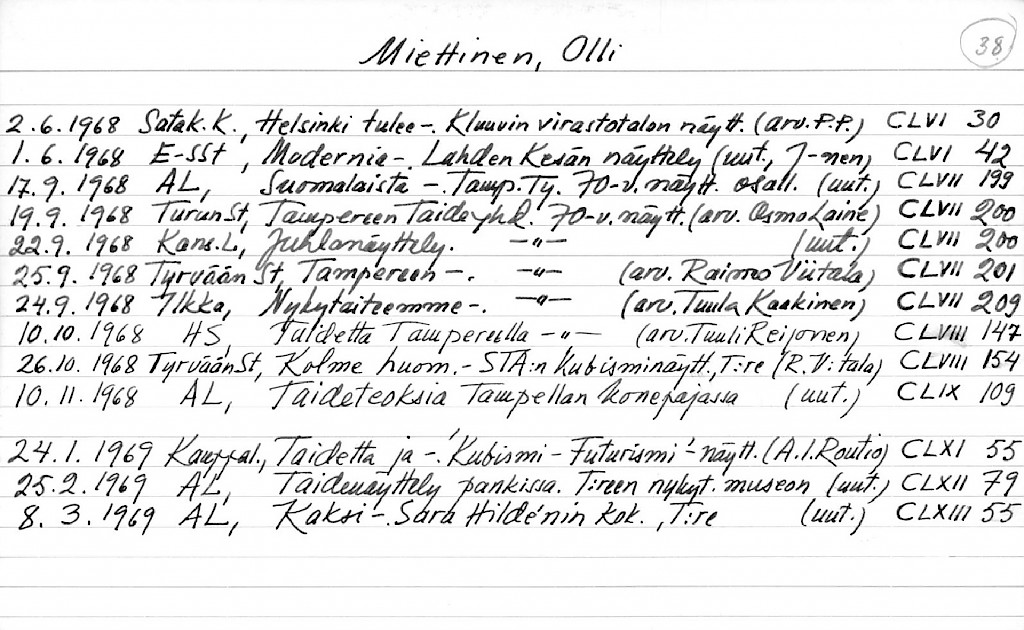 38
Miettinen, Olli
2.6.1968 Satak.K., Helsinki tulee-. Kluuvin virastotalon näytt. (arv.P.P.) CLVI 30
1.6.1968 E-SSt, Modernia-. Lahden Kesän näyttely (uut., J-nen) CLVI 42
17.9.1968 AL, Suomalaista -. Tamp.Ty. 70-v. näytt. osall. (uut.) CLVII 199
19.9.1968 TurunSt, Tampereen Taideyhd. 70-v. näytt. (arv. Osmo Laine) CLVII 200
22.9.1968 Kans.L, Juhlanäyttely. -"- (uut.) CLVII 200
25.9.1968 Tyrvään St, Tampereen -. -"- (arv. Raimo Viitala) CLVII 201
24.9.1968 Ilkka, Nykytaiteemme-. -"- (arv. Tuula Kaakinen) CLVII 209
10.10.1968 HS, Taidetta Tampereella -"- (arv. Tuuli Reijonen) CLVIII 147
26.10.1968 TyrväänSt, Kolme huom.- STA:n Kubisminäytt., T:re (R.V:tala) CLVIII 154
10.11.1968 AL, Taideteoksia Tampellan konepajassa (uut.) CLIX 109
24.1.1969 Kauppal., Taidetta ja -. 'Kubismi - Futurismi'-näytt. (A.I.Routio) CLXI 55
25.2.1969 AL, Taidenäyttely pankissa. T:reen nykyt. museon (uut.) CLXII 79
8.3.1969 AL, Kaksi-. Sara Hildénin kok., T:re (uut.) CLXIII 55